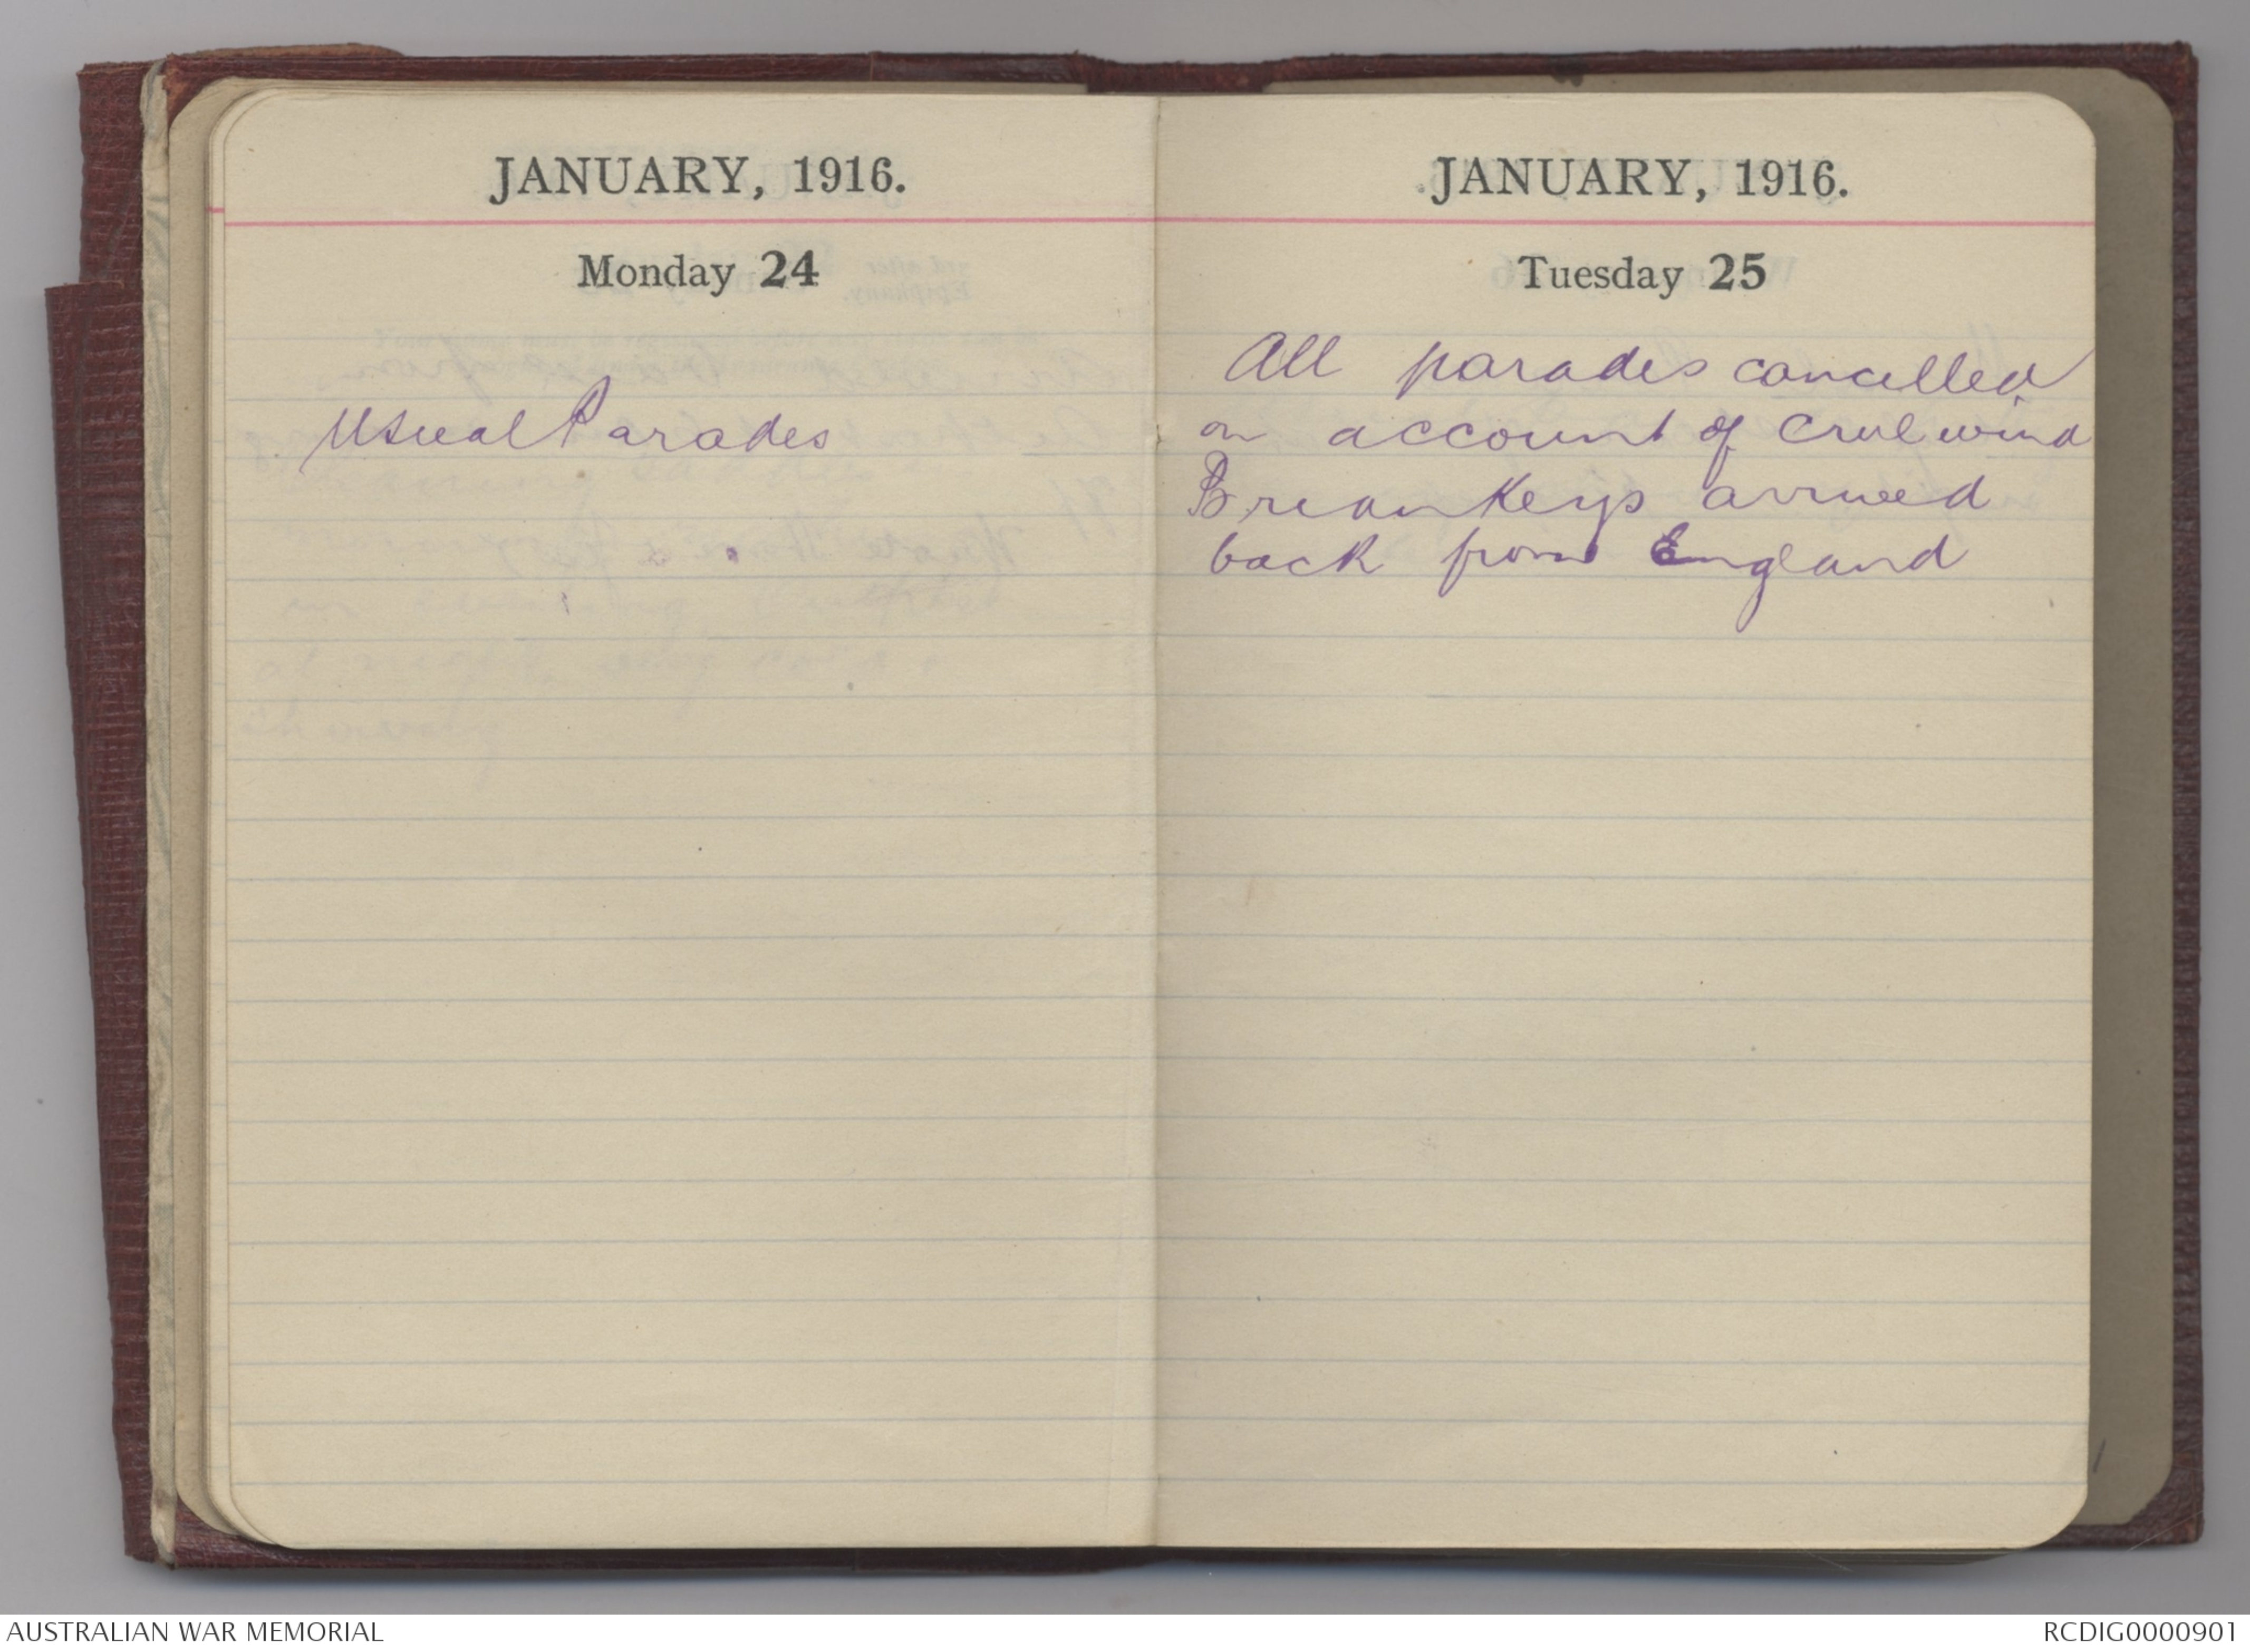 JANUARY, 1916.
Monday 24
Usual Parades
JANUARY, 1916.
Tuesday 25
All parades cancelled
on account of cruel wind
Brian Keys arrived
back from England
AUSTRALIAN WAR MEMORIAL
RCDIG0000901